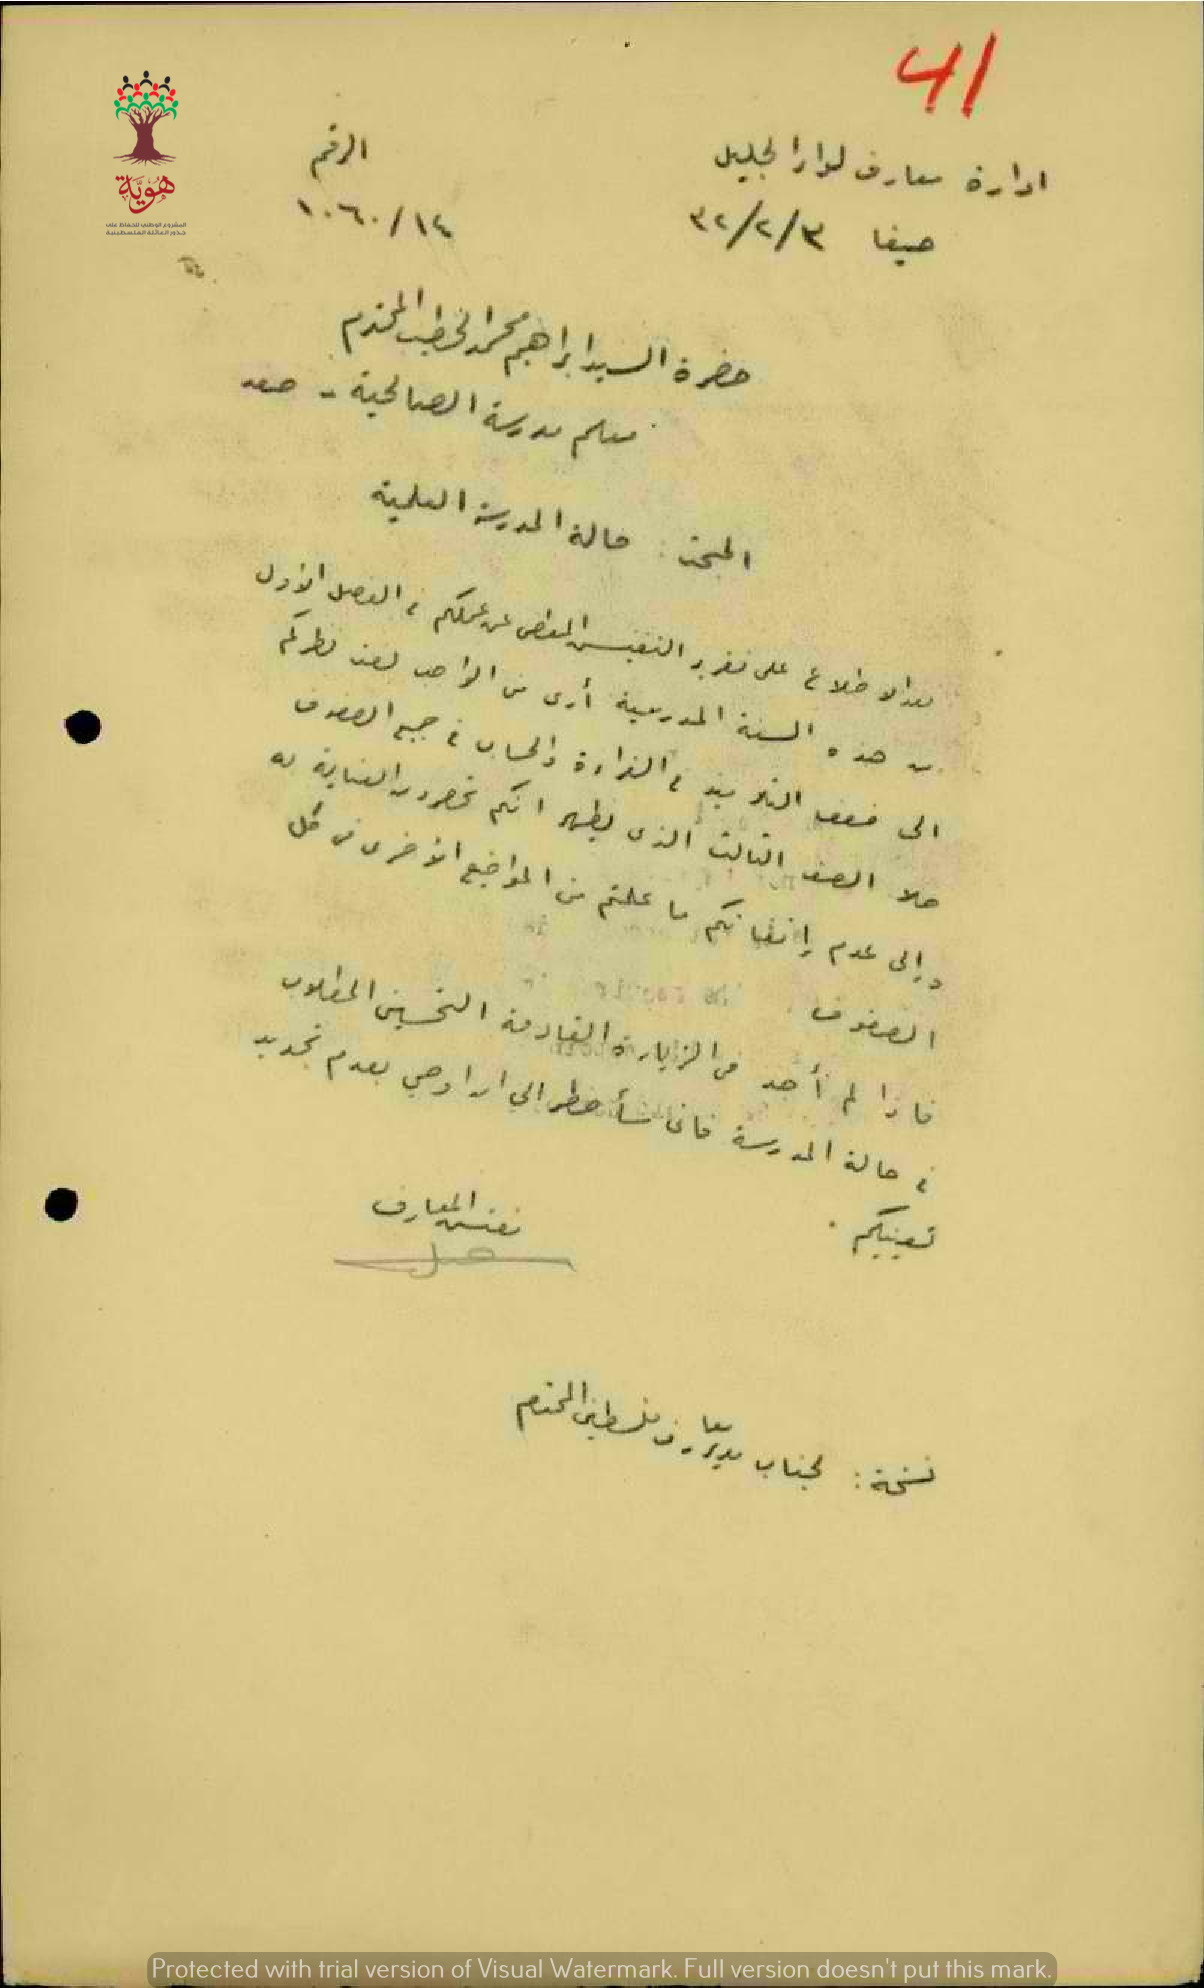 41
ادارة معارف لواء الجليل
الرقم
حيفا ٣/٢/٣٢
١٠٦٠/١٤
هُوِيَّة
المشروع الوطني للحفاظ على
جذور العائلة الفلسطينية
حضرة السيد ابراهيم محمد الخطيب المحترم
معلم مدرسة الصالحية - صفد
المبحث : حالة المدرسة العلمية
بعد الاطلاع على تقرير التفتيش المفصل عن عملكم في الفصل الأول
من هذه السنة المدرسية أرى من الواجب لفت نظركم
الى ضعف التلاميذ في القراءة والحساب في جميع الصفوف
خلا الصف الثالث الذي يظهر انكم تحصرون العناية به
والى عدم اتقانكم ما علمتم من المواضيع الأخرى في كل
الصفوف .
فاذا لم أجد في الزيارة القادمة التحسين المطلوب
في حالة المدرسة فاني سأضطر الى ان اوصي بعدم تجديد
تعيينكم .
مفتش المعارف
نسخة : لجناب مدير معارف فلسطين المحترم
Protected with trial version of Visual Watermark. Full version doesn't put this mark.